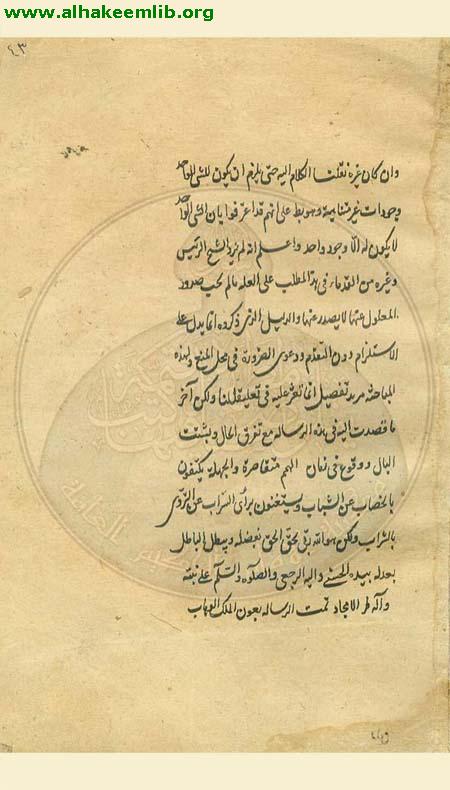 www.alhakeemlib.org
٤٣
وان كان غيره نقلنا الكلام اليه حتى يلزم ان يكون للشئ الواحد
وجودات غير متناهية وهو بط على انهم قد اعترفوا بان الشئ الواحد
لا يكون له الا وجود واحد واعلم انه لم يزد الشيخ الرئيس
وغيره من القدماء فى هذا المطلب على ان العله مالم يجب صدور
المعلول عنها لا يصدر عنها والدليل الذى ذكروه انما يدل على
الاستلزام دون التقدم ودعوى الضرورة فى محل المنع ولهذه
المباحثه مزيد تفصيل انما تعثر عليه فى تعليقاتنا وليكن آخر
ما قصدت اليه فى هذه الرساله مع تفرق الحال وتشتت
البال ووقوع فى زمان الهمم متقاصرة والجهلة يكتفون
بالخضاب عن الشباب ويستغنون برأى السراب عن التروى
بالشراب ولكن هو الله يحق الحق بفضله ويبطل الباطل
بعدله بيده الحسنى واليه الرجعى والصلوة والسلام على نبيه
وآله الامجاد تمت الرساله بعون الملك الوهاب